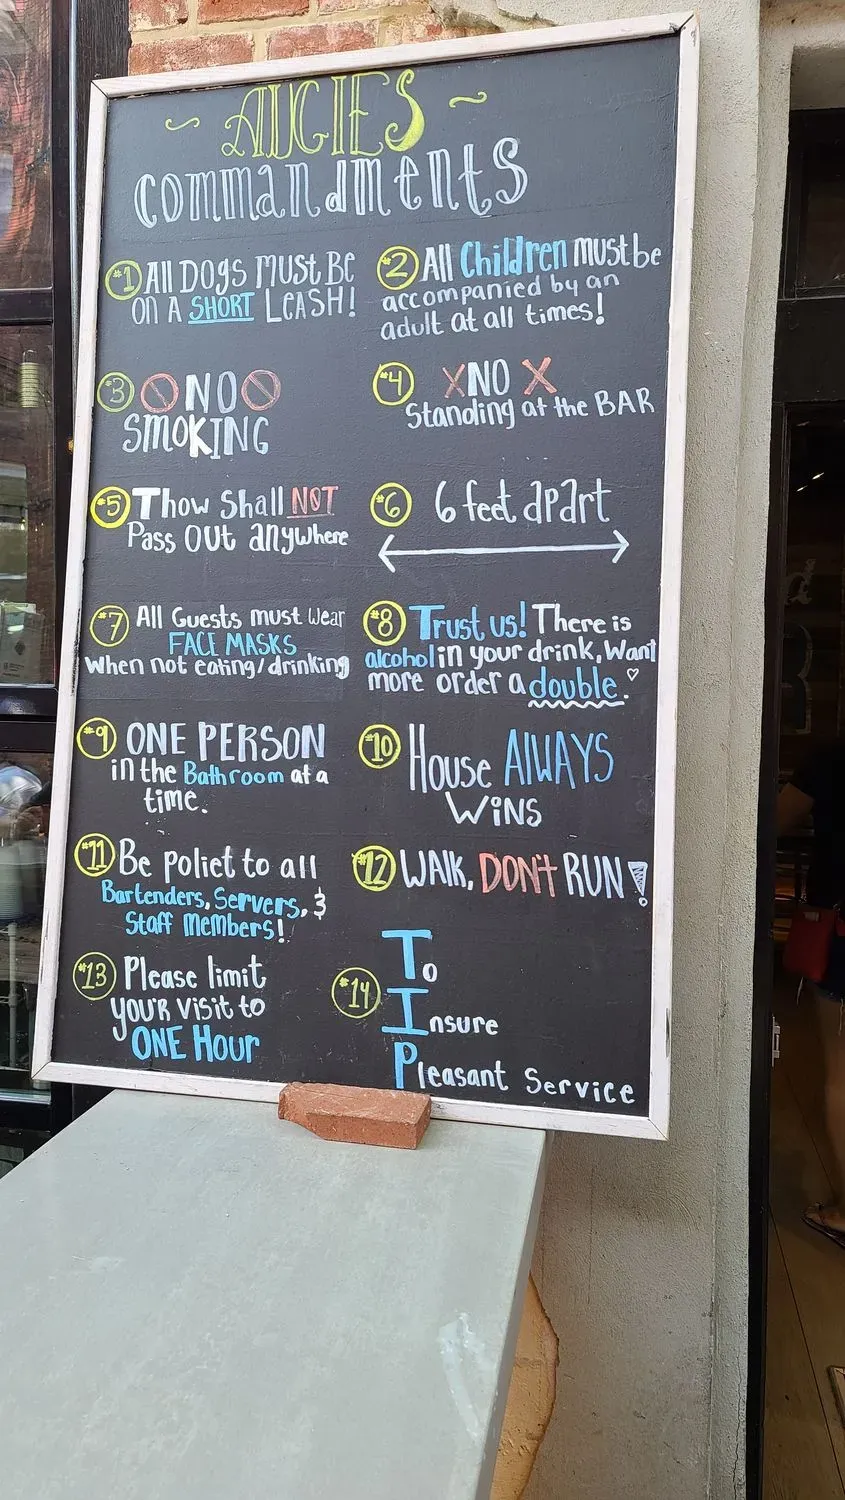 ~ AUGIES ~
commandments
#1 All DOGS MUST BE
ON A SHORT LEASH!
#2 All Children must be
accompanied by an
adult at all times!
#3 NO
SMOKING
#4 X NO X
Standing at the BAR
#5 Thow Shall NOT
Pass OUt anywhere
#6 6 feet apart
#7 All Guests must wear
FACE MASKS
when not eating/drinking
#8 Trust us! There is
alcohol in your drink, Want
more order a double.
#9 ONE PERSON
in the Bathroom at a
time.
#10 House AlWAYS
WiNS
#11 Be poliet to all
Bartenders, Servers, &
Staff members!
#12 WAlK, DON't RUN!
#13 Please limit
your visit to
ONE Hour
#14 To
Insure
Pleasant Service